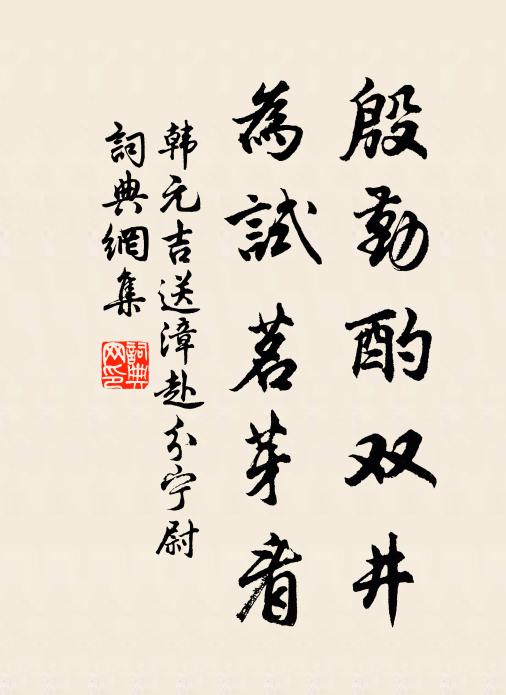 殷勤酌双井
為試茗芽看
韩元吉送漳赴分宁尉
詞典網集
詞典网印